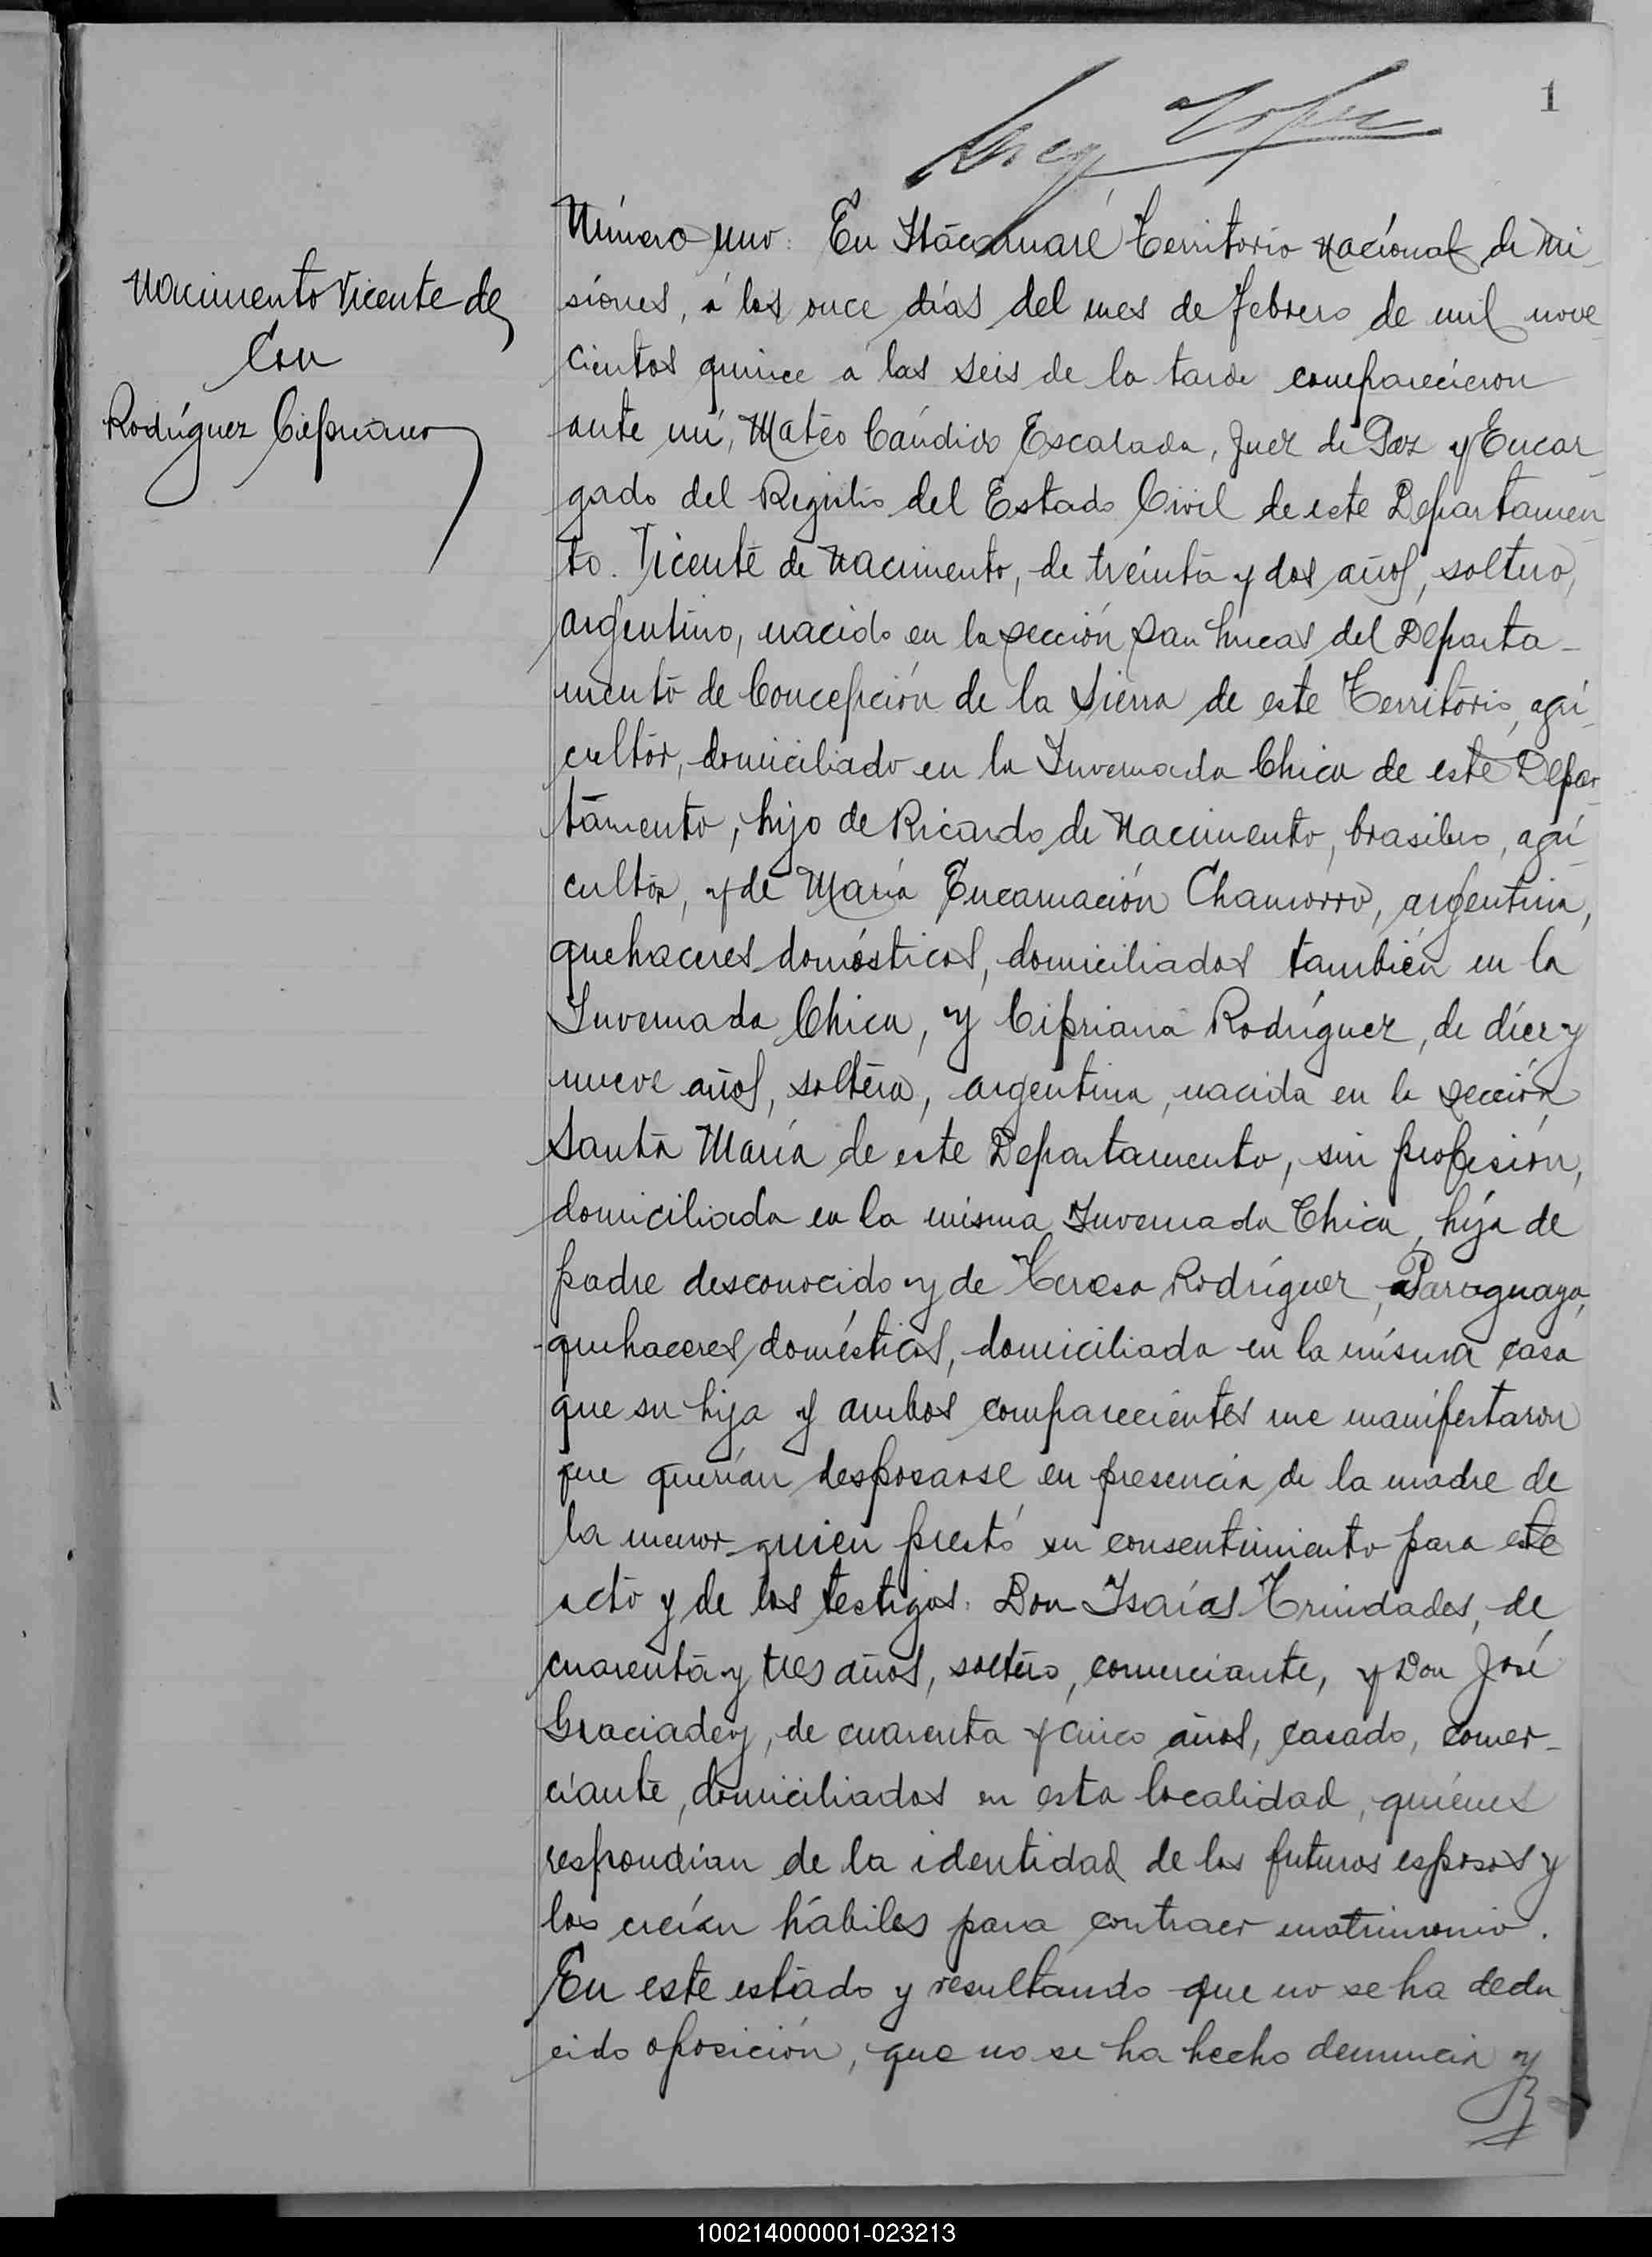 1
Nacimento Vicente de
Con
Rodríguez Cipriana
Número uno. En Itácaruaré Territorio Nacional de Mi-
siones, á los once días del mes de febrero de mil nove-
cientos quince á las seis de la tarde comparecieron
ante mí, Mateo Cándido Escalada, Juez de Paz y Encar-
gado del Registro del Estado Civil de este Departamen-
to. Vicente de Nacimento, de treinta y dos años, soltero,
argentino, nacido en la sección San Lucas del Departa-
mento de Concepción de la Sierra de este Territorio, agri-
cultor, domiciliado en la Invernada Chica de este Depar-
tamento, hijo de Ricardo de Nacimento, brasilero, agri-
cultor, y de María Encarnación Chamorro, argentina,
quehaceres domésticos, domiciliados también en la
Invernada Chica, y Cipriana Rodríguez, de diez y
nueve años, soltera, argentina, nacida en la sección
Santa María de este Departamento, sin profesión,
domiciliada en la misma Invernada Chica, hija de
padre desconocido y de Teresa Rodríguez, Paraguaya,
quehaceres domésticos, domiciliada en la misma casa
que su hija y ambos comparecientes me manifestaron
que querían desposarse en presencia de la madre de
la menor quien prestó su consentimiento para este
acto y de los testigos. Don Isaías Trindades, de
cuarenta y tres años, soltero, comerciante, y Don José
Graciadey, de cuarenta y cinco años, casado, comer-
ciante, domiciliados en esta localidad, quienes
respondían de la identidad de los futuros esposos y
los creían hábiles para contraer matrimonio.
En este estado y resultando que no se ha dedu-
cido oposición, que no se ha hecho denuncia y
100214000001-023213